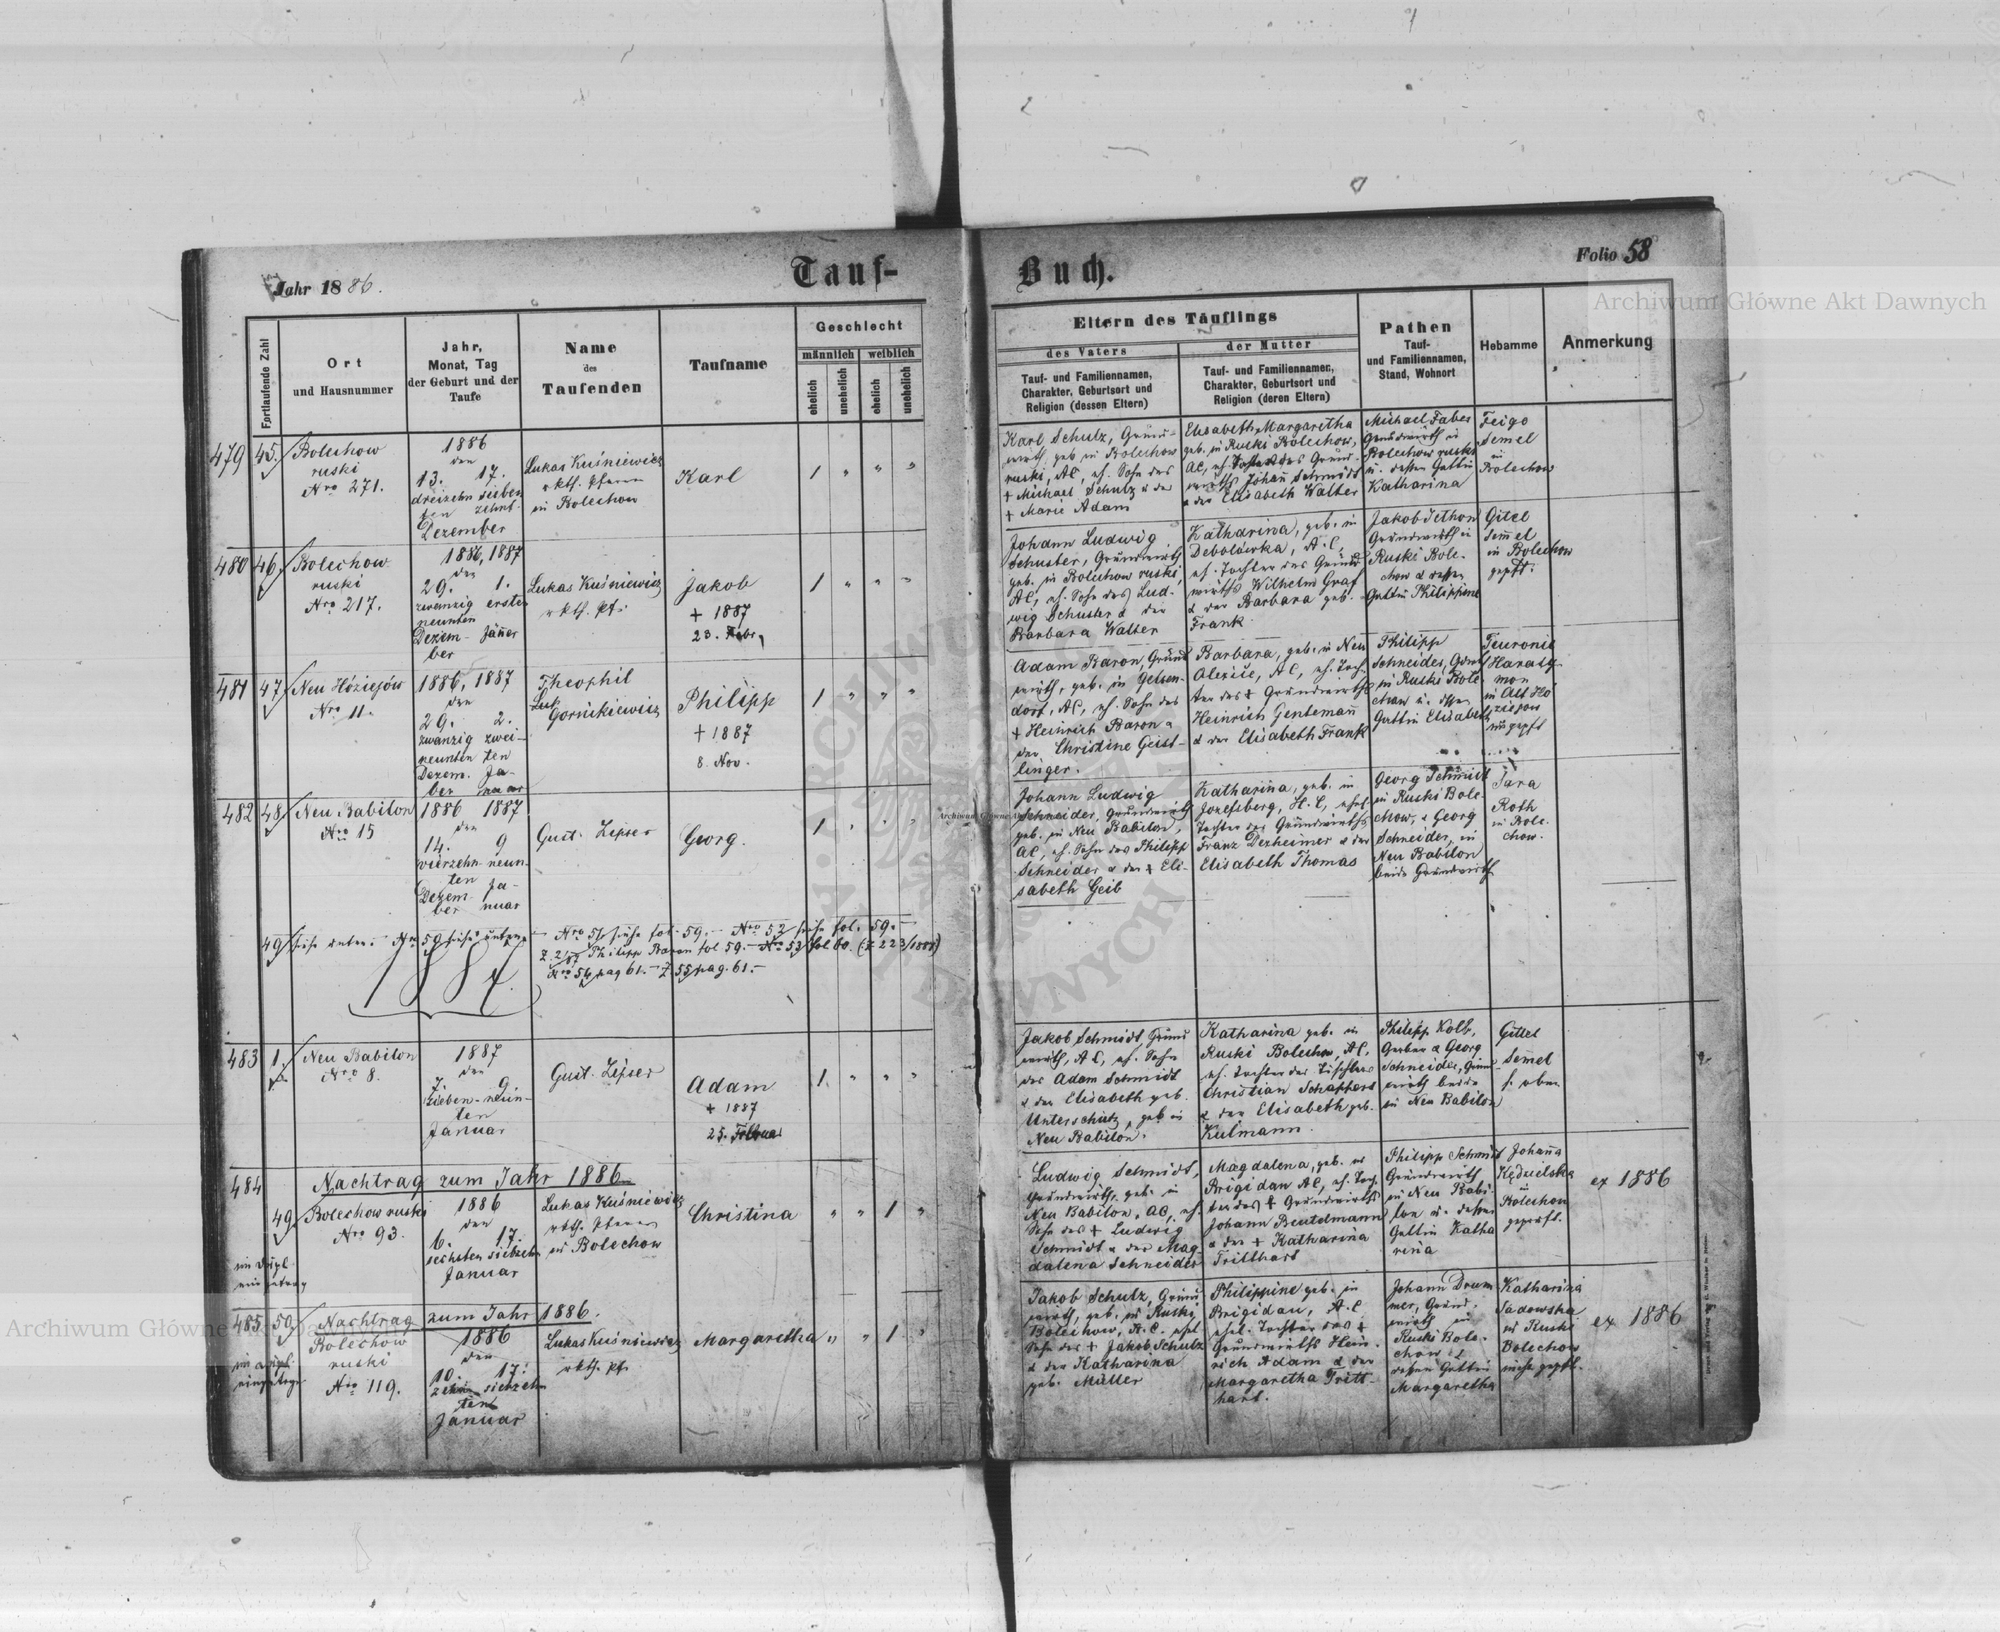 Jahr 1886.
Tauf-
Buch.
Folio 58
Archiwum Główne Akt Dawnych
Fortlaufende Zahl
Ort
und Hausnummer
Jahr,
Monat, Tag
der Geburt und der
Taufe
Name
des
Taufenden
Taufname
Geschlecht
männlich
weiblich
ehelich
unehelich
ehelich
unehelich
Eltern des Täuflings
des Vaters
der Mutter
Tauf- und Familiennamen,
Charakter, Geburtsort und
Religion (dessen Eltern)
Tauf- und Familiennamen,
Charakter, Geburtsort und
Religion (deren Eltern)
Pathen
Tauf-
und Familiennamen,
Stand, Wohnort
Hebamme
Anmerkung
479
45.
Bolechow
ruski
Nro 271.
1886
den
13. 17.
dreizehn sieben
ten zehnt
Dezember
Lukas Kuśniewicz
rkth. Pfarrer
in Bolechow
Karl
1 " " "
Karl Schulz, Grund-
wirth, geb in Bolechow
ruski, AC, eh. Sohn des
+ Michael Schulz & der
+ Marie Adam
Elisabeth Margaretha
geb. in Ruski Bolechow,
AC, eh. Tochter des Grund-
wirths Johann Schmidt
& der Elisabeth Walter
Michael Faber
Grundwirth in
Bolechow ruski
u. dessen Gattin
Katharina
Feigo
Semel
in
Bolechow
480
46.
Bolechow
ruski
Nro 217.
1886, 1887
den
29. 1.
zwanzig ersten
neunten
Dezem- Jäner
ber
Lukas Kuśniewicz
rkth. Pf.
Jakob
+ 1887
23. Febr.
1 " " "
Johann Ludwig
Schuster, Grundwirth
geb. in Bolechow ruski,
AC, eh. Sohn des Lud-
wig Schuster & der
Barbara Walter
Katharina, geb. in
Debolówka, A.C,
eh. Tochter des Grund
wirths Wilhelm Graf
& der Barbara geb.
Frank
Jakob Jethon
Grundwirth in
Ruski Bole-
chow & dessen
Gattin Philippine
Gitel
Semel
in Bolechow
gepft.
481
47.
Neu Hoziejów
Nro 11.
1886, 1887
den
29. 2.
zwanzig zwei-
neunten ten
Dezem. Ja-
ber nuar
Theophil
Gornikiewicz
Philipp
+ 1887
8. Nov.
1 " " "
Adam Baron, Grund
wirth, geb. in Gelsen-
dorf, AC, eh. Sohn des
+ Heinrich Baron &
der Christine Geist-
linger.
Barbara, geb. in Neu
Olexice, AC, eh. Toch-
ter des + Grundwirths
Heinrich Gentemann
& der Elisabeth Frank
Philipp
Schneider, Grdw
in Ruski Bole
chow u. dessen
Gattin Elisabeth
482
48.
Neu Babilon
Nro 15
1886 1887
den
14. 9
vierzehn neun-
ten
Dezem- Ja-
ber nuar
Gust. Lipser
Georg.
1 " " "
Johann Ludwig
Schneider, Grundwirth
geb. in Neu Babilon,
AC, eh. Sohn des Philipp
Schneider & der + Eli-
sabeth Geib
Katharina, geb. in
Josefsberg, H.C, ehel
Tochter des Grundwirths
Franz Dexheimer & der
Elisabeth Thomas
Georg Schmidt
in Ruski Bole-
chow, & Georg
Schneider, in
Neu Babilon
beide Grundwirth
Sara
Roth
in Bole-
chow.
49 siehe unten. Nro 50 siehe unten. Nro 51 siehe fol. 59. Nro 52 siehe fol. 59.
Philipp Baron fol 59. Nro 53 fol 60. (Z 223/1888)
Nro 54 pag 61. Z 55 pag. 61.
1887.
483
1.
Neu Babilon
Nro 8.
1887
den
7. 9.
sieben- neun-
ten
Januar
Gust. Lipser
Adam
+ 1887
25. Februar
1. " " "
Jakob Schmidt, Grund
wirth, AC, eh. Sohn
des Adam Schmidt
& der Elisabeth geb.
Unterschütz, geb in
Neu Babilon.
Katharina geb. in
Ruski Bolechow, AC,
eh. Tochter des Tischlers
Christian Schaffert
& der Elisabeth geb.
Kulmann.
Philipp Kolb,
Gerber & Georg
Schneider, Grund-
wirth beide
in Neu Babilon
Gittel
Semel
s. oben
484
Nachtrag zum Jahr 1886
49
Bolechow ruski
Nro 93.
1886
den
6. 17.
sechsten siebzehn
Januar
Lukas Kuśniewicz
rkth. Pfarrer
in Bolechow
Christina
" " 1 "
Ludwig Schmidt,
Grundwirth, geb. in
Neu Babilon, AC, eh.
Sohn des + Ludwig
Schmidt & der Mag-
dalena Schneider
Magdalena, geb. in
Brigidau AC, eh. Toch-
ter des + Grundwirths
Johann Beutelmann
& der + Katharina
Tritthart
Philipp Schmidt
Grundwirth
in Neu Babi-
lon u. dessen
Gattin Katha
rina
Johanna
in
Bolechow
geprft.
ex 1886
485
50.
Nachtrag zum Jahr 1886.
Bolechow
ruski
Nro 119.
1886
den
10. 17.
zehn siebzehn
ten
Januar
Lukas Kuśniewicz
rkth. Pf.
Margaretha
" " 1 "
Jakob Schulz, Grund
wirth, geb. in Ruski
Bolechow, A.C. ehel
Sohn des + Jakob Schulz
& der Katharina
geb. Müller
Philippine geb. in
Brigidau, A.C
ehel. Tochter des +
Grundwirths Hein-
rich Adam & der
Margaretha Tritt-
hart.
Johann Drum
mer, Grund-
wirth in
Ruski Bole-
chow &
dessen Gattin
Margaretha
Katharina
Sadowska
in Ruski
Bolechow
nicht gepft.
ex 1886
Archiwum Główne Akt Dawnych